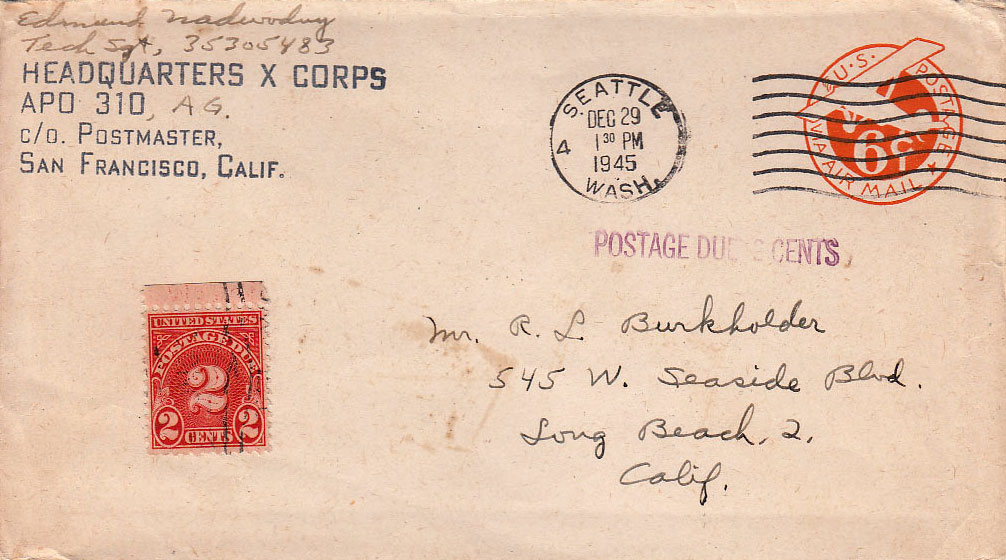 Edmund Nadwodny
Tech Sgt, 35305483
HEADQUARTERS X CORPS
APO 310, AG.
c/o. POSTMASTER,
SAN FRANCISCO, CALIF.
SEATTLE
4
DEC 29
1 30 PM
1945
WASH.
U.S. POSTAGE
6¢
VIA AIR MAIL
POSTAGE DUE CENTS
UNITED STATES
POSTAGE DUE
2
2 CENTS 2
Mr. R. L. Burkholder
545 W. Seaside Blvd.
Long Beach, 2,
Calif.